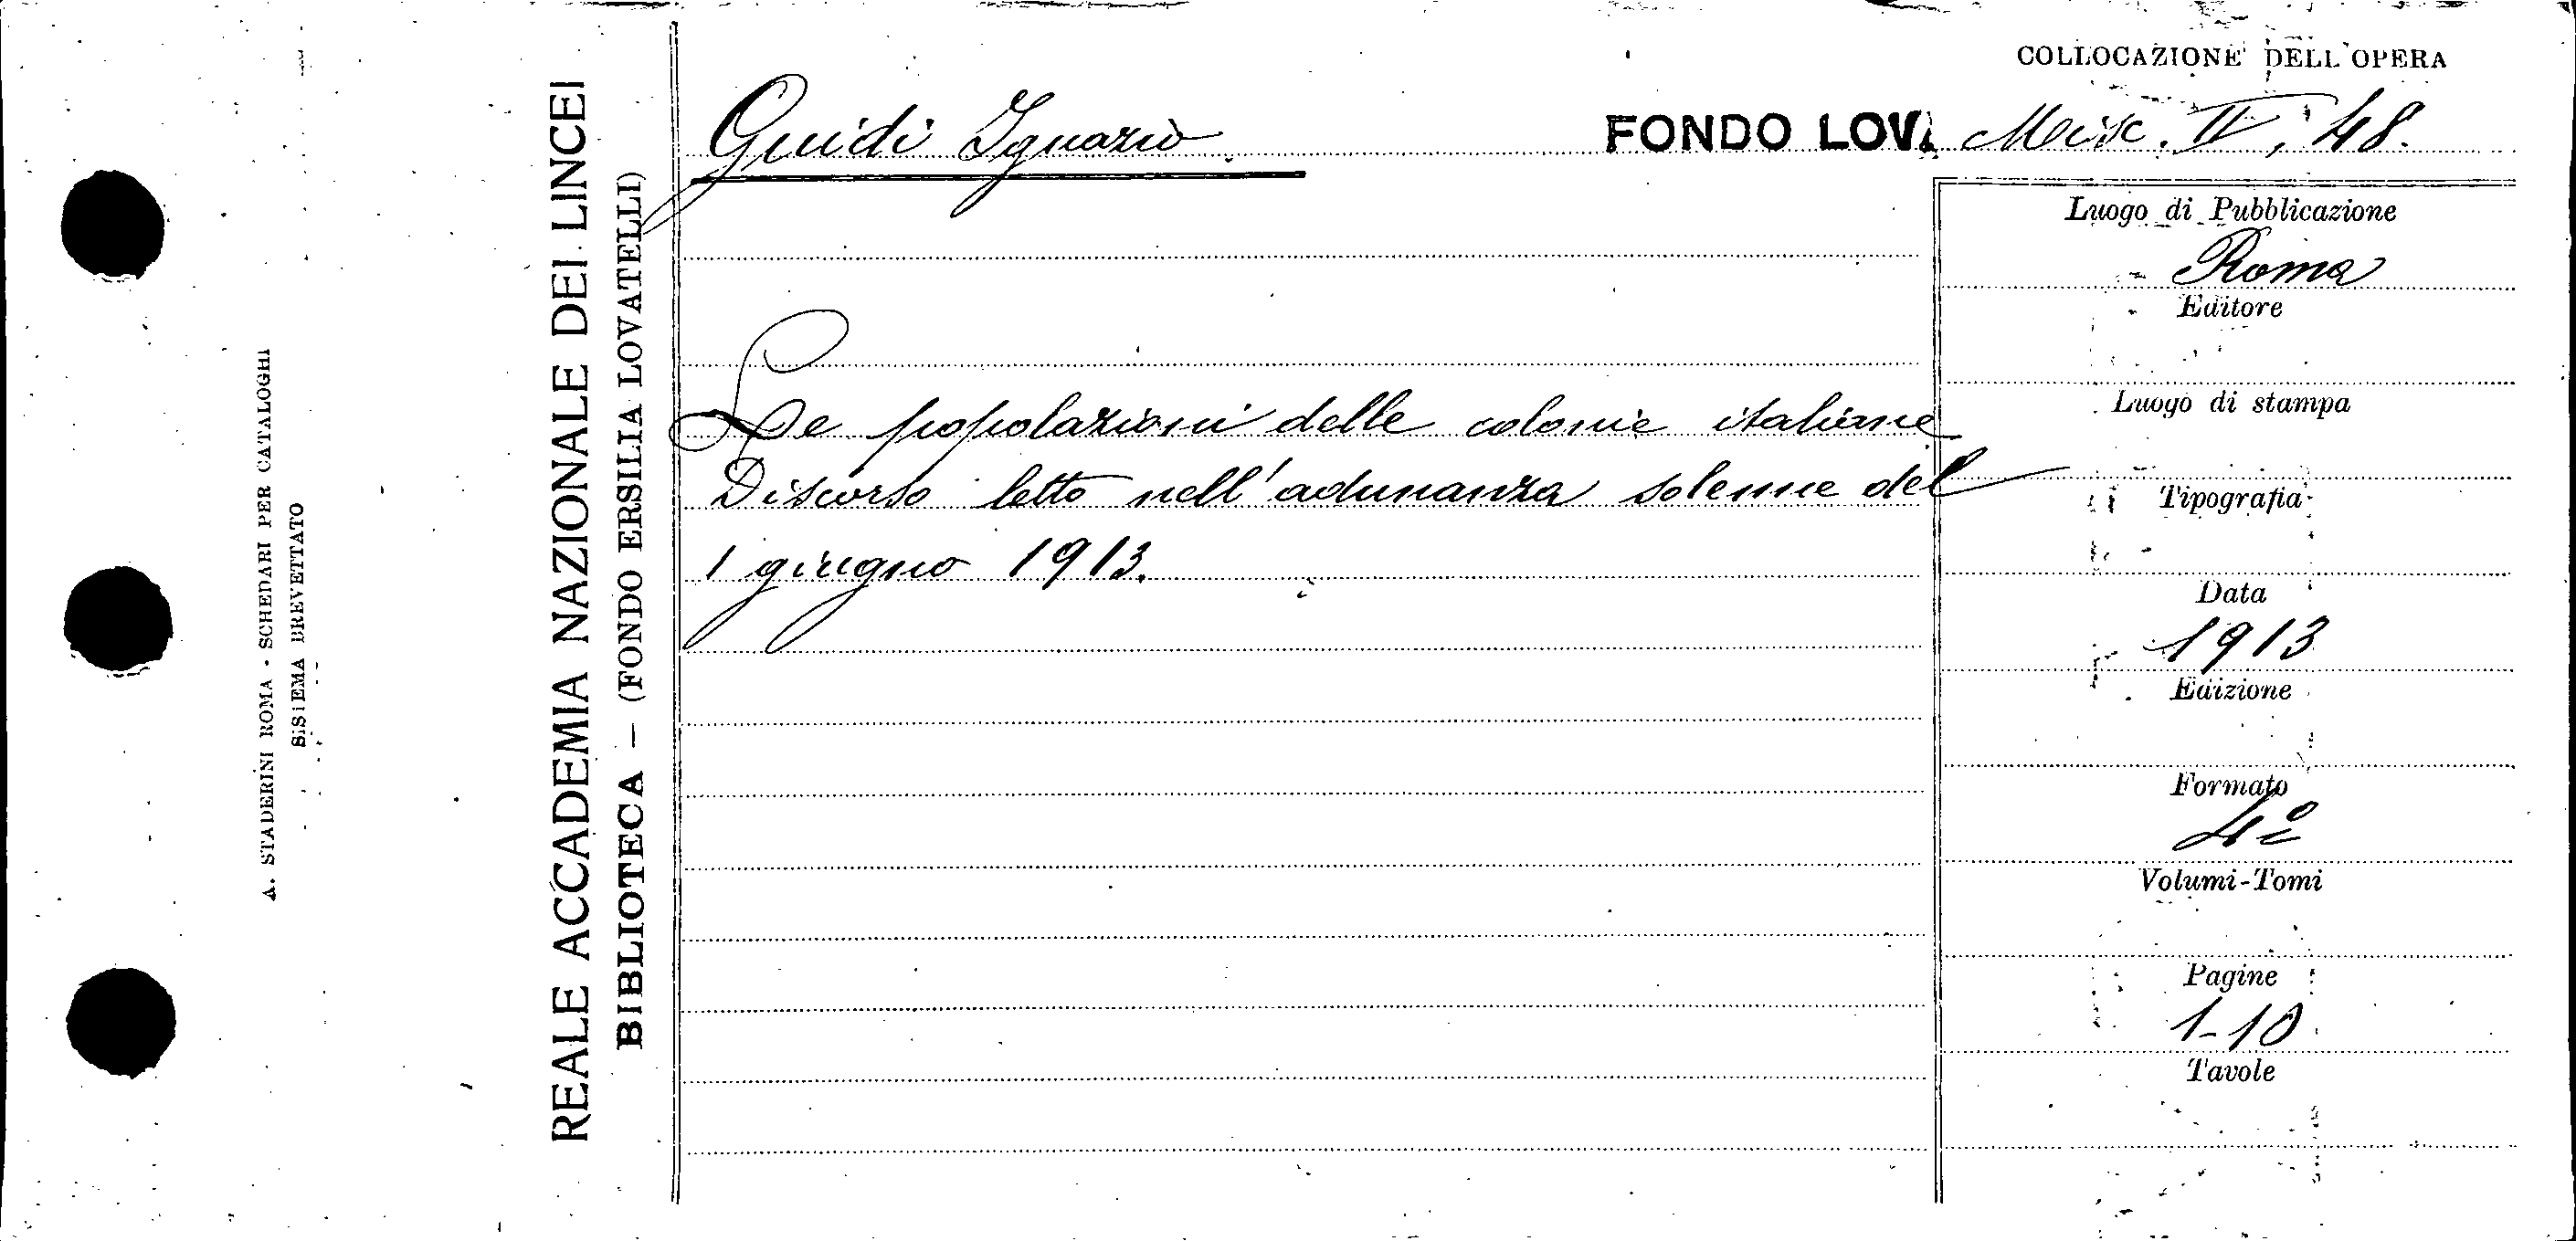 A. STADERINI ROMA - SCHEDARI PER CATALOGHI
SISTEMA BREVETTATO
REALE ACCADEMIA NAZIONALE DEI LINCEI
BIBLIOTECA — (FONDO ERSILIA LOVATELLI)
COLLOCAZIONE DELL'OPERA
Guidi Ignazio
FONDO LOV. Misc. IV, 48.
Le popolazioni delle colonie italiane
Discorso letto nell'adunanza solenne del
1 giugno 1913.
Luogo di Pubblicazione
Roma
Editore
Luogo di stampa
Tipografia
Data
1913
Edizione
Formato
4º
Volumi-Tomi
Pagine
1-10
Tavole